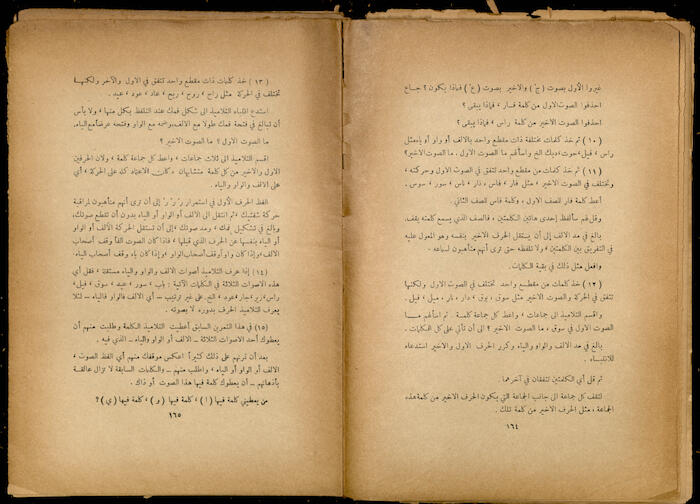 غيروا الأول بصوت (ج) والاخير بصوت (ع) فماذا يكون ؟ جاع
احذفوا الصوت الاول من كلمة فار ، فماذا يبقى ؟
احذفوا الصوت الاخير من كلمة راس ، فماذا يبقى ؟
(١٠) ثم خذ كلمات مختلفة ذات مقطع واحد بالالف أو واو أو ياء مثل
راس ، فيل ، حوت ، ديك الخ واسألهم ما الصوت الاول . ما الصوت الاخير؟
(١١) ثم خذ كلمات من مقطع واحد تتفق في الصوت الاول وحركته ،
وتختلف في الاخير ، مثل فار ، فاس ، دار ، باس ، سور ، سوس .
أعط كلمة فار للصف الاول ، وكلمة فاس للصف الثاني .
وقل لهم سألفظ إحدى هاتين الكلمتين ، فالصف الذي يسمع كلمته يقف .
بالغ في مد الالف إلى أن يستقل الحرف الاخير بنفسه وهو المعول عليه
في التفريق بين الكلمتين ، ولا تلفظه حتى ترى أنهم متأهبون لسماعه .
وافعل مثل ذلك في بقية الكلمات .
(١٢) خذ كلمات من مقطع واحد تختلف في الصوت الاول ولكنها
تتفق في الحركة والصوت الاخير مثل سوق ، بوق ، دار ، نار ، ميل ، فيل .
واقسم التلاميذ الى جماعات ، واعط كل جماعة كلمة . ثم اسألهم ما
الصوت الاول في سوق ، ما الصوت الاخير ؟ الى أن تأتي على كل الكلمات .
بالغ في مد الالف والواو والياء وكرر الحرف الاول والاخير استدعاء
للانتباه .
ثم قل أي الكلمتين تتفقان في آخرهما .
لتقف كل جماعة الى جانب الجماعة التي يكون الحرف الاخير من كلمة هذه
الجماعة ، مثل الحرف الاخير من كلمة تلك .
١٦٤
(١٣) خذ كلمات ذات مقطع واحد تتفق في الاول والآخر ولكنها
تختلف في الحركة مثل راح ، روح ، ريح ، عاد ، عود ، عيد .
استدع انتباه التلاميذ الى شكل فمك عند التلفظ بكل منها ، ولا بأس
أن تبالغ في فتحة فمك طولا مع الالف وضمه مع الواو وفتحه عرضاً مع الياء.
ما الصوت الاول ؟ ما الصوت الاخير ؟
اقسم التلاميذ الى ثلاث جماعات ، واعط كل جماعة كلمة ، ولان الحرفين
الاول والاخير من كل كلمة متشابهان ، كان الاعتماد كله على الحركة ، أي
على الالف والواو والياء .
الفظ الحرف الأول في استمرار رْ رْ رْ إلى أن ترى أنهم متأهبون لمراقبة
حركة شفتيك ، ثم انتقل الى الالف أو الواو أو الياء بدون أن تقطع صوتك ،
وبالغ في تشكيل فمك ، ومد صوتك ، إلى أن تستقل الحركة الالف أو الواو
أو الياء بنفسها عن الحرف الذي قبلها ، فاذا كان الصوت الفاً وقف أصحاب
الالف ، وإذا كان واواً وقف أصحاب الواو ، وإذا كان ياء وقف أصحاب الياء.
(١٤) إذا عرف التلاميذ أصوات الالف والواو والياء مستقلة ، فقل أي
هذه الاصوات الثلاثة في الكلمات الآتية : باب ، سور ، عيد ، سوق ، فيل ،
راس، زير، جار، عود، الخ. على غير ترتيب ـ أي الالف فالواو فالياء ـ لئلا
يعرف التلاميذ الحرف بدوره لا بصوته .
(١٥) في هذا التمرين السابق أعطيت التلاميذ الكلمة وطلبت منهم أن
يعطوك أحد الاصوات الثلاثة ـ الالف أو الواو والياء ـ الذي فيه .
بعد أن تمرنهم على ذلك كثيراً اعكس موقفك منهم أي الفظ الصوت ،
الالف أو الواو أو الياء ، واطلب منهم ـ والكلمات السابقة لا تزال عالقة
بأذهانهم ـ أن يعطوك كلمة فيها هذا الصوت أو ذاك .
من يعطيني كلمة فيها (ا) ، كلمة فيها (و) ، كلمة فيها (ي) ؟
١٦٥